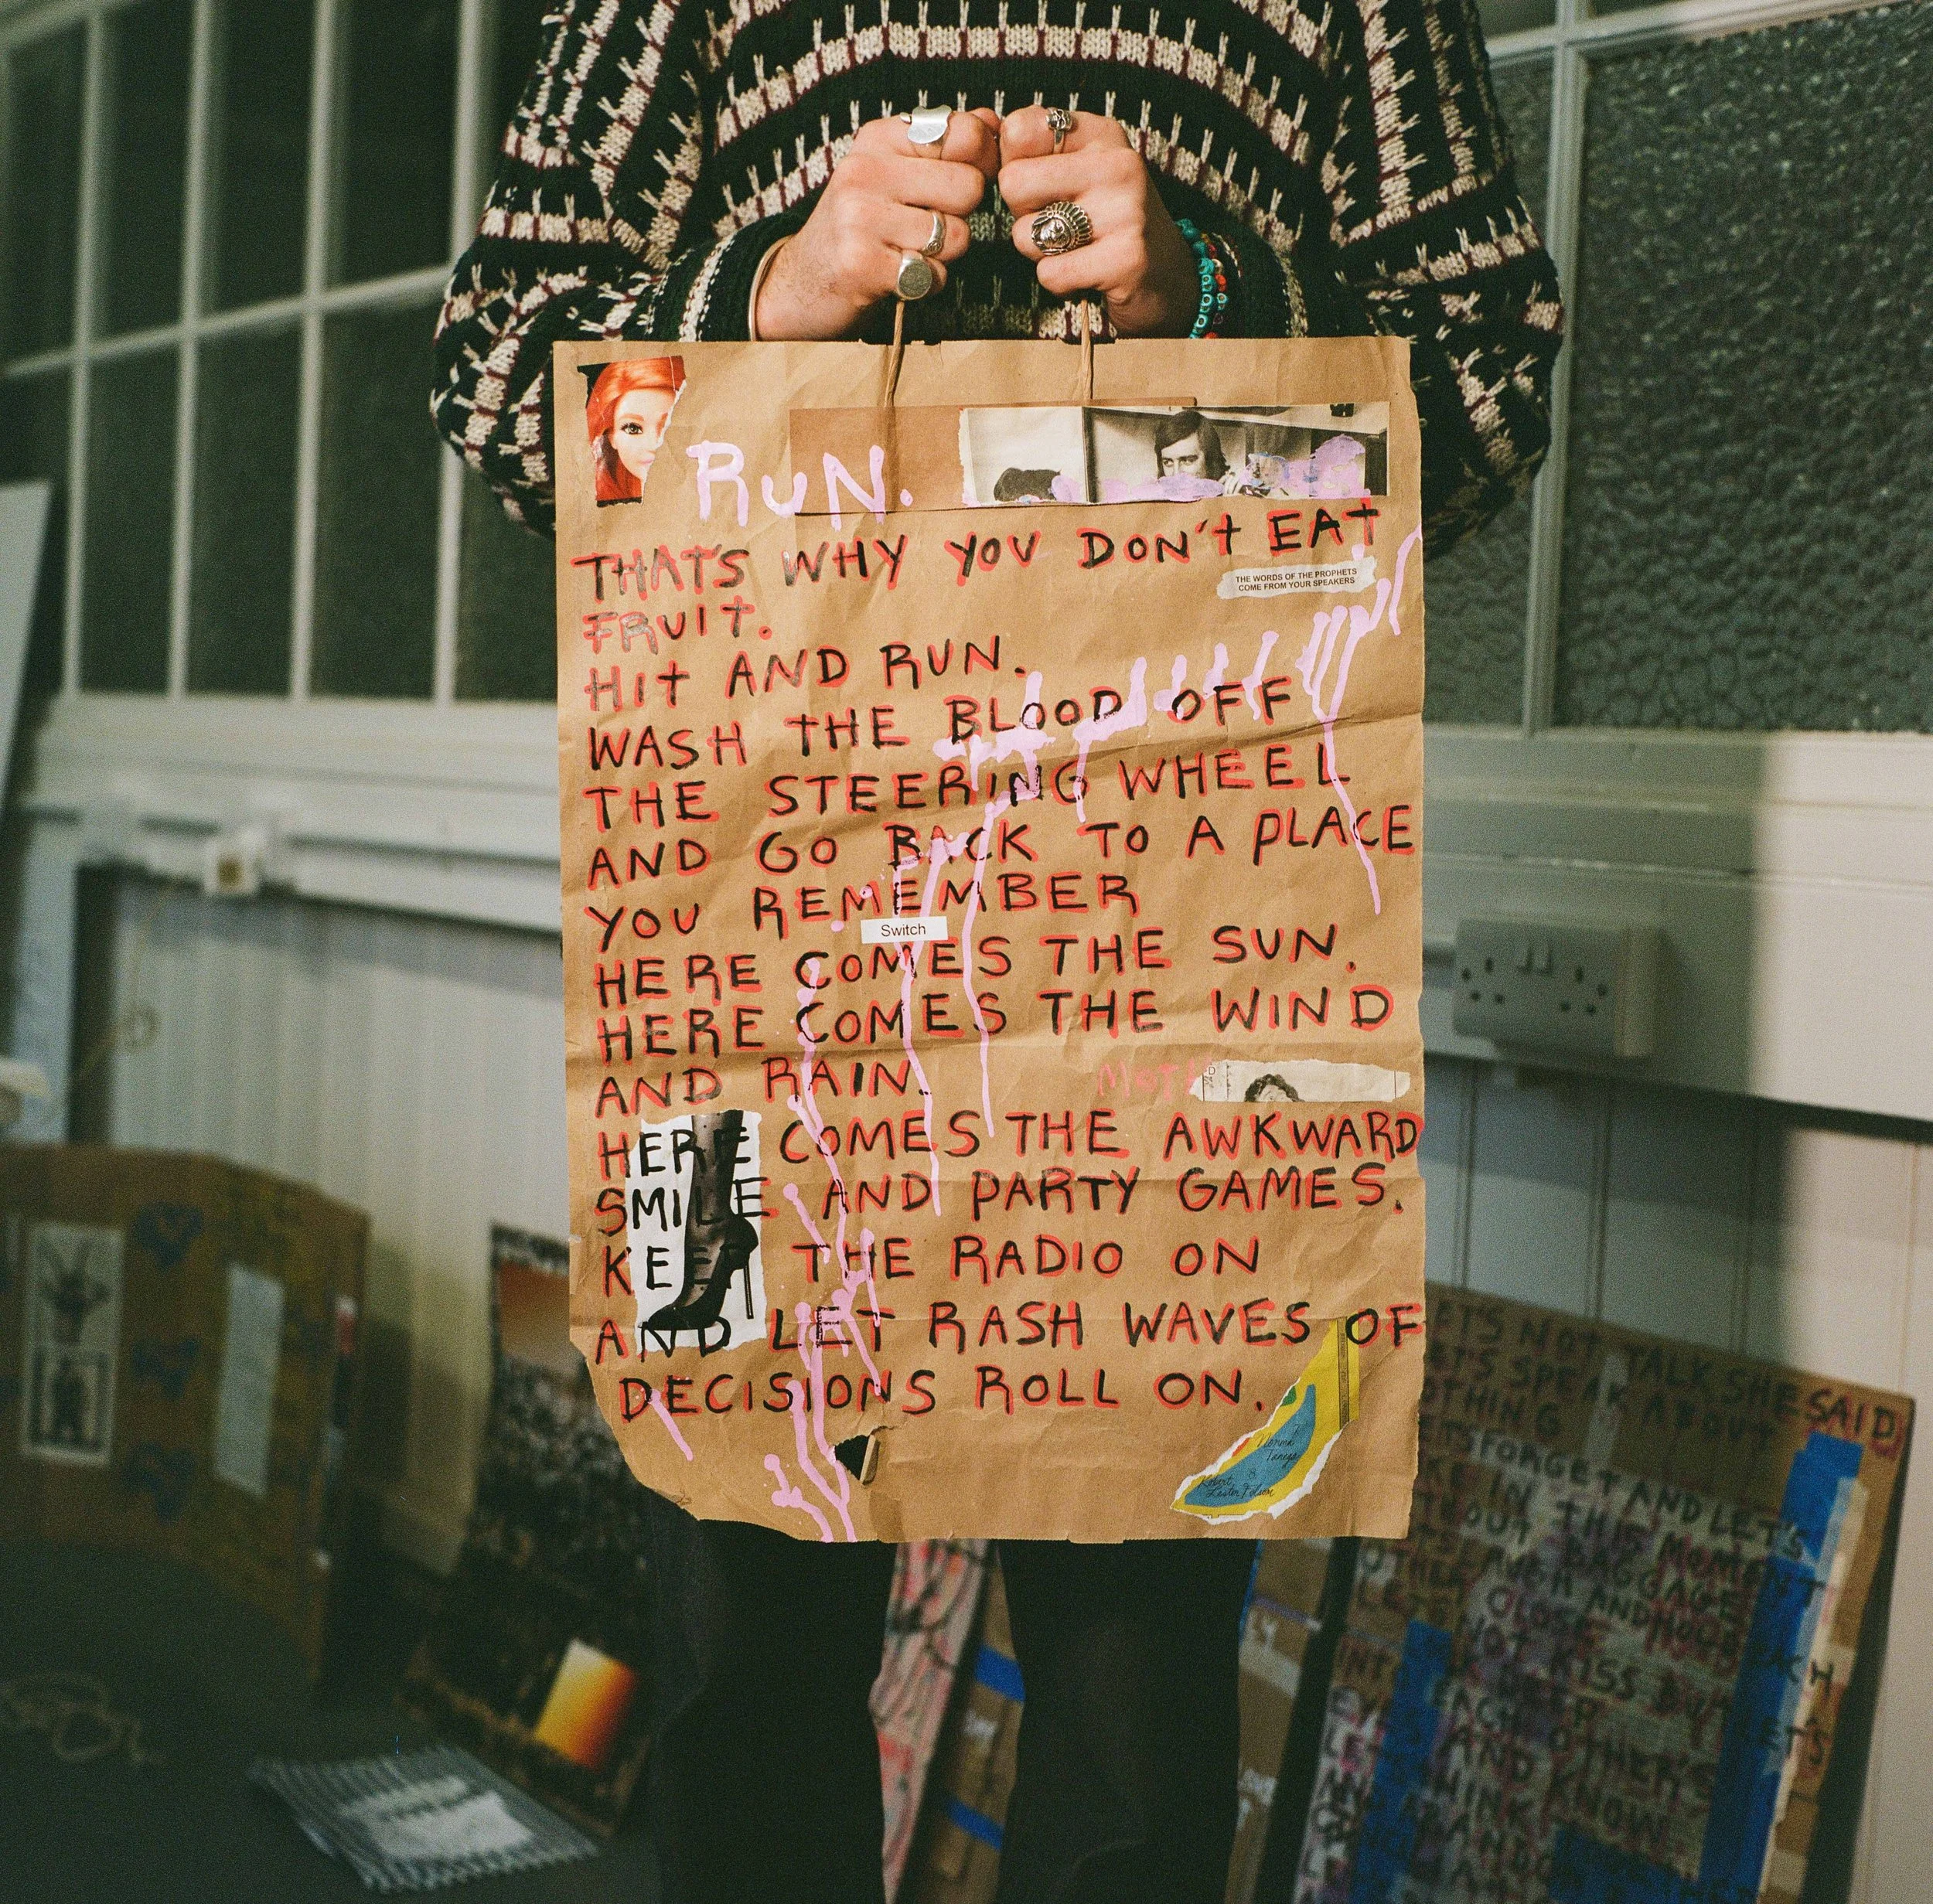 RUN.
THAT'S WHY YOU DON'T EAT
THE WORDS OF THE PROPHETS
COME FROM YOUR SPEAKERS
FRUIT.
HIT AND RUN.
WASH THE BLOOD OFF
THE STEERING WHEEL
AND GO BACK TO A PLACE
YOU REMEMBER
Switch
HERE COMES THE SUN.
HERE COMES THE WIND
AND RAIN.
HERE COMES THE AWKWARD
SMILE AND PARTY GAMES.
KEEP THE RADIO ON
AND LET RASH WAVES OF
DECISIONS ROLL ON.
Norma
Tanega
&
Robert
Lester Folsom
NOT TALK SHE SAID
SPEAK ABOUT
FORGET AND LET'S
IN THIS MOMENT
BAGGAGE
LAUGH AND
CLOSE
KISS
EACH OTHER'S
AND KNOW